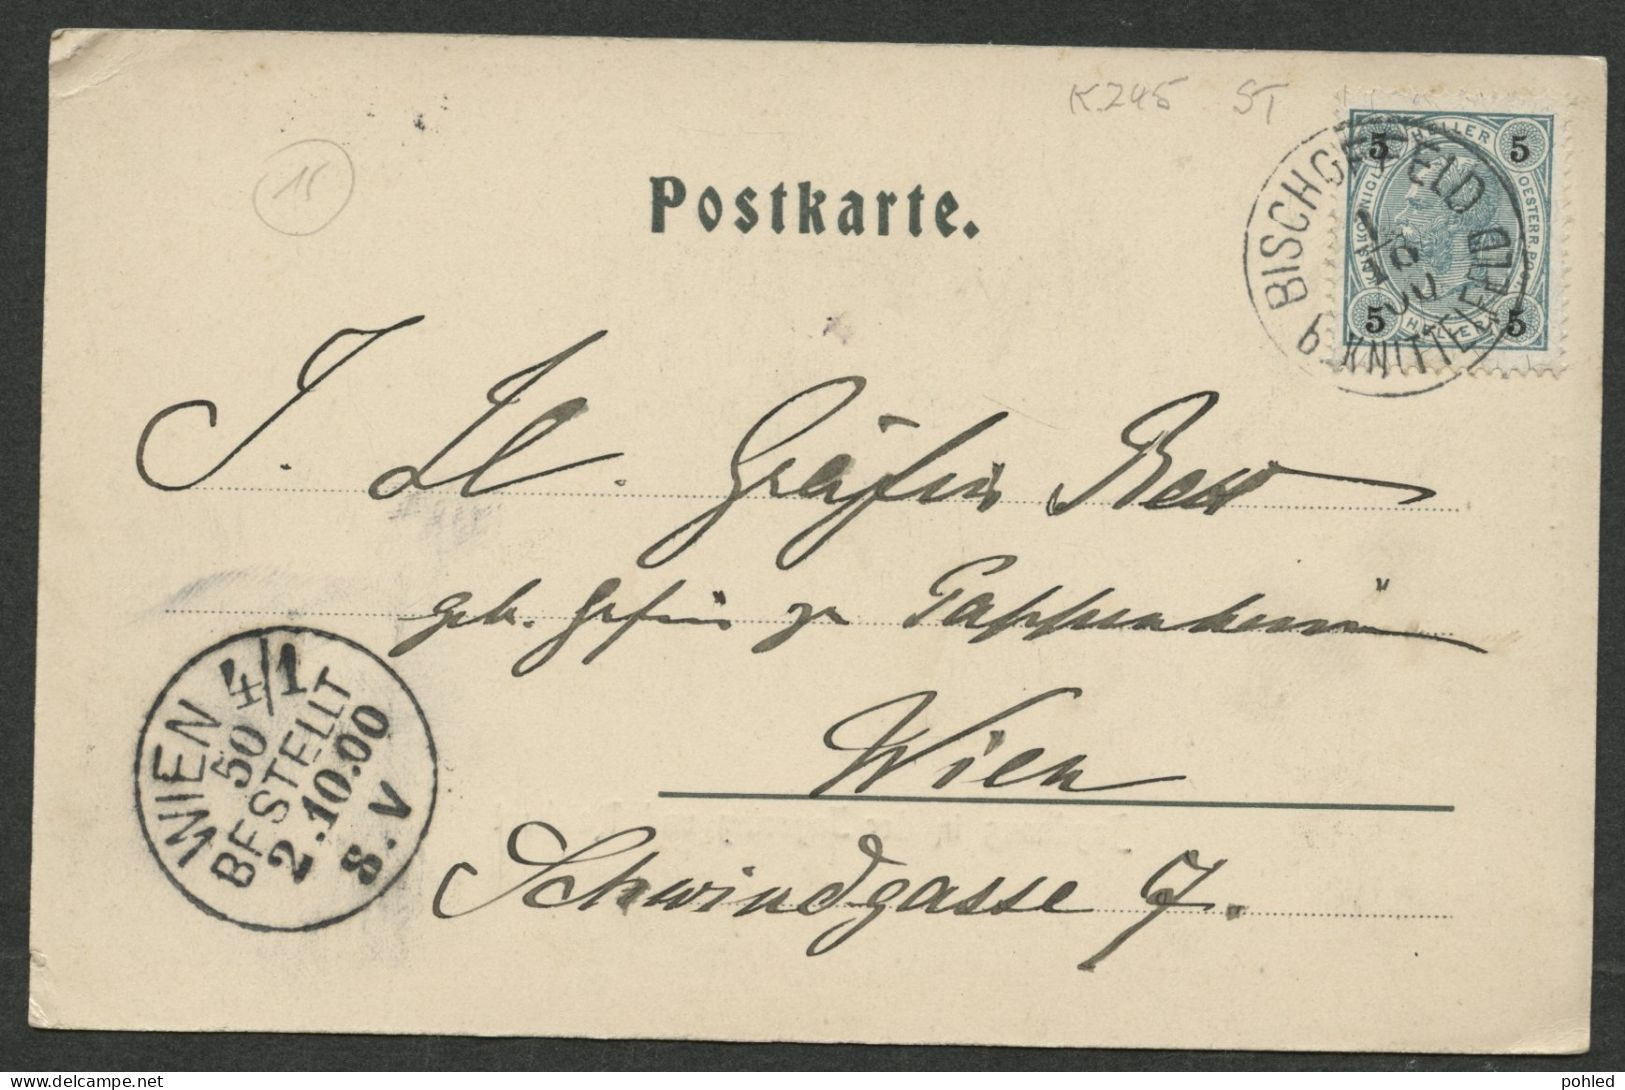 K.245 ST
15
Postkarte.
5 HELLER 5
KAIS. KÖNIGL. OESTERR. POST
5 HELLER 5
BISCHOFFELD
1/10
00
b. KNITTELFELD
I. Il. Gräfin
geb. Gräfin zu Pappenheim
Wien
Schwindgasse 7.
WIEN 4/1
50
BESTELLT
2.10.00
8.V
pohled